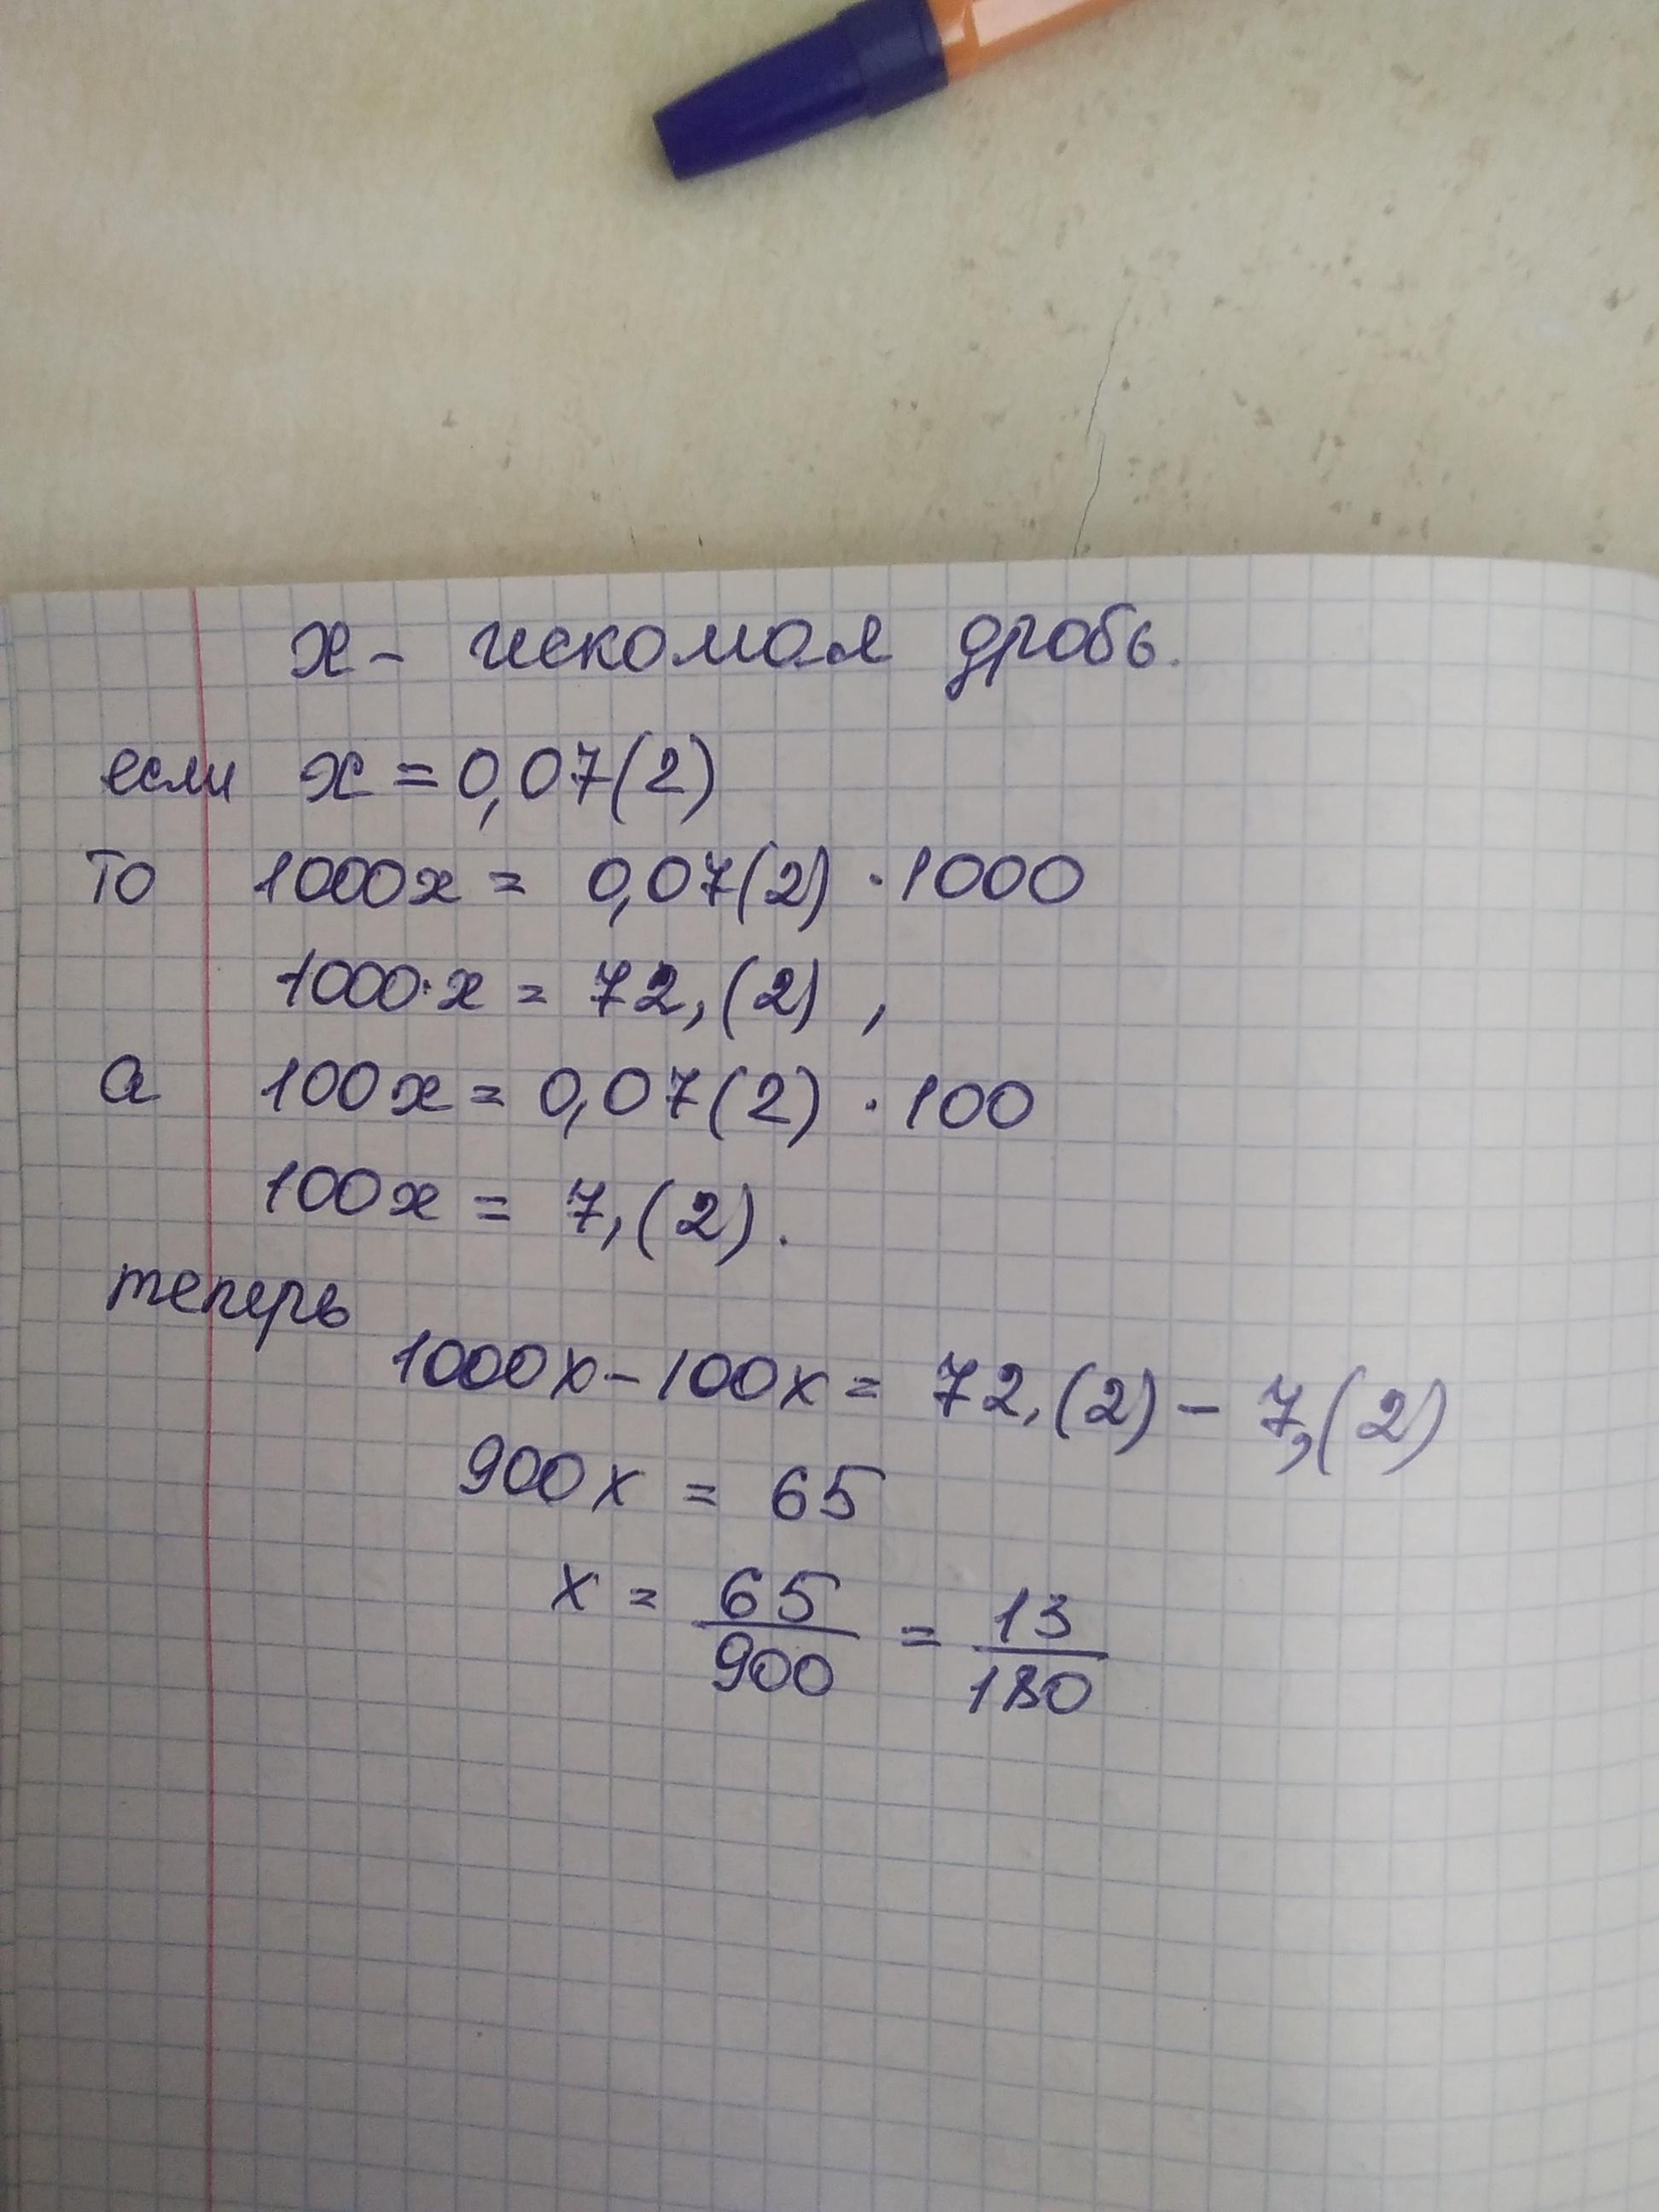 x - искомая дробь.
если x = 0,07(2)
то 1000x = 0,07(2) · 1000
1000·x = 72,(2) ,
а 100x = 0,07(2) · 100
100x = 7,(2).
теперь
1000x - 100x = 72,(2) - 7,(2)
900x = 65
x = 65/900 = 13/180